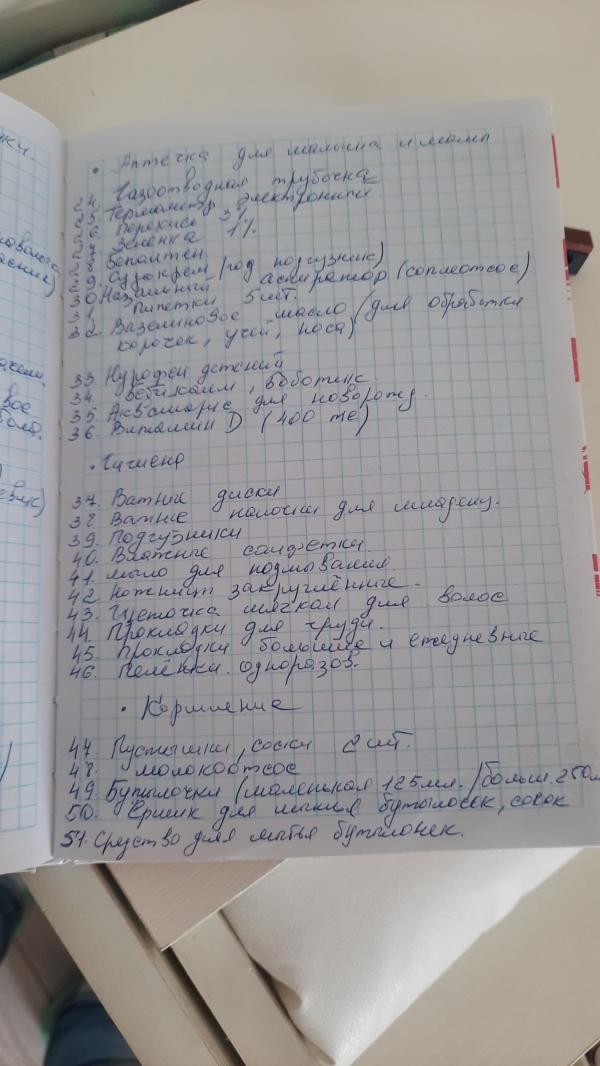 ки.
• Аптечка для малыша и мамы
24. Газоотводная трубочка
25. Термометр электронный
26. Перекись 3%
27. Зелёнка 1%
28. Бепантен
29. Судокрем (под подгузник)
30. Назальный аспиратор (соплеотсос)
31. Пипетки 5 шт.
32. Вазелиновое масло (для обработки
корочек, ушей, носа)
33. Нурофен детский
34. Бебикалм, боботик
35. Аквамарис для новорожд.
36. Витамин D (400 ме)
• Гигиена
37. Ватные диски
38. Ватные палочки для младенц.
39. Подгузники
40. Влажные салфетки
41. Мыло для подмывания
42. Ножницы закруглённые.
43. Щёточка мягкая для волос
44. Прокладки для груди.
45. Прокладки большие и ежедневные
46. Пелёнки одноразов.
• Кормление
47. Пустышки, соски 2 шт.
48. Молокоотсос
49. Бутылочки (маленькая 125мл. /больш. 250м
50. Ёршик для мытья бутылочек, сосок
51. Средство для мытья бутылочек.